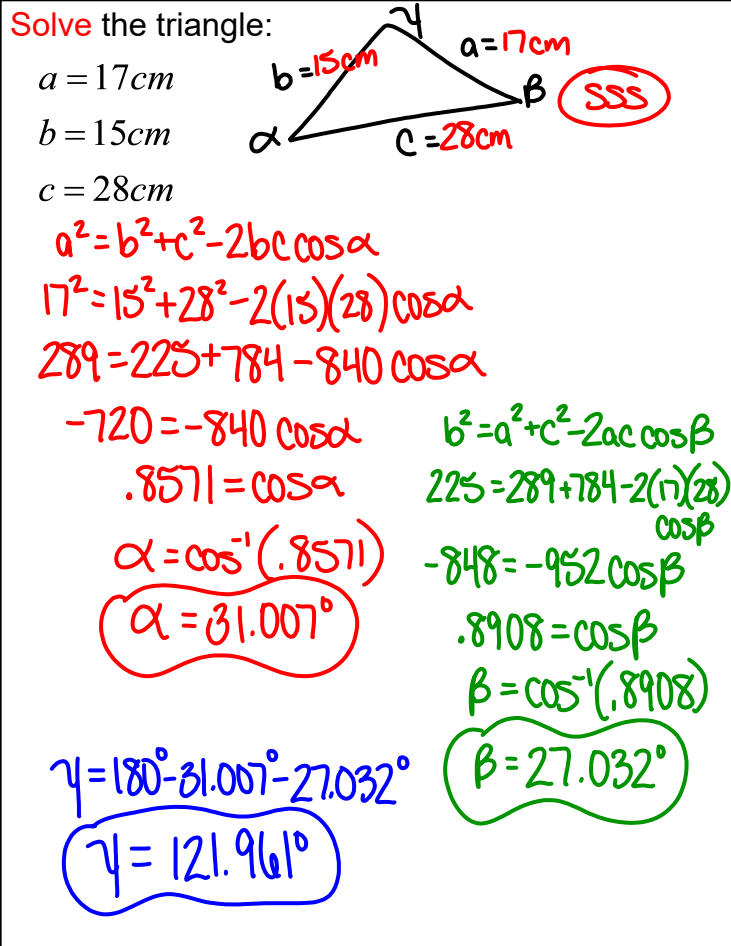 Solve the triangle:
a = 17cm
b = 15cm
c = 28cm
γ
b = 15cm
a = 17cm
β
SSS
α
c = 28cm
a² = b² + c² - 2bc cosα
17² = 15² + 28² - 2(15)(28) cosα
289 = 225 + 784 - 840 cosα
-720 = -840 cosα
.8571 = cosα
α = cos⁻¹(.8571)
α = 31.007°
b² = a² + c² - 2ac cosβ
225 = 289 + 784 - 2(17)(28)
cosβ
-848 = -952 cosβ
.8908 = cosβ
β = cos⁻¹(.8908)
β = 27.032°
γ = 180° - 31.007° - 27.032°
γ = 121.961°